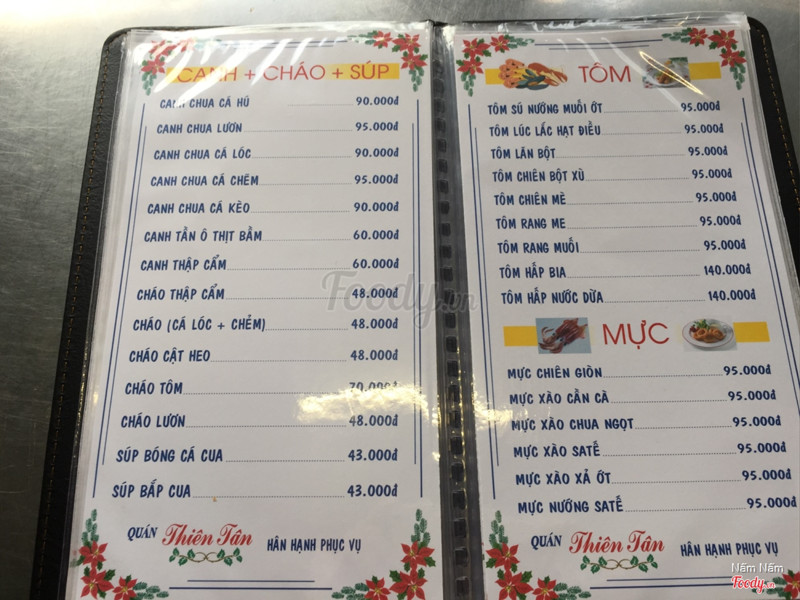 CANH + CHÁO + SÚP
CANH CHUA CÁ HÚ 90.000đ
CANH CHUA LƯƠN 95.000đ
CANH CHUA CÁ LÓC 90.000đ
CANH CHUA CÁ CHẼM 95.000đ
CANH CHUA CÁ KÈO 90.000đ
CANH TẦN Ô THỊT BẦM 60.000đ
CANH THẬP CẨM 60.000đ
CHÁO THẬP CẨM 48.000đ
CHÁO (CÁ LÓC + CHẺM) 48.000đ
CHÁO CẬT HEO 48.000đ
CHÁO TÔM 70.000đ
CHÁO LƯƠN 48.000đ
SÚP BÓNG CÁ CUA 43.000đ
SÚP BẮP CUA 43.000đ
QUÁN Thiên Tân HÂN HẠNH PHỤC VỤ
TÔM
TÔM SÚ NƯỚNG MUỐI ỚT 95.000đ
TÔM LÚC LẮC HẠT ĐIỀU 95.000đ
TÔM LĂN BỘT 95.000đ
TÔM CHIÊN BỘT XÙ 95.000đ
TÔM CHIÊN MÈ 95.000đ
TÔM RANG ME 95.000đ
TÔM RANG MUỐI 95.000đ
TÔM HẤP BIA 140.000đ
TÔM HẤP NƯỚC DỪA 140.000đ
MỰC
MỰC CHIÊN GIÒN 95.000đ
MỰC XÀO CẦN CÀ 95.000đ
MỰC XÀO CHUA NGỌT 95.000đ
MỰC XÀO SATẾ 95.000đ
MỰC XÀO XẢ ỚT 95.000đ
MỰC NƯỚNG SATẾ 95.000đ
QUÁN Thiên Tân HÂN HẠNH PHỤC VỤ
Foody.vn
Năm Năm
Foody.vn